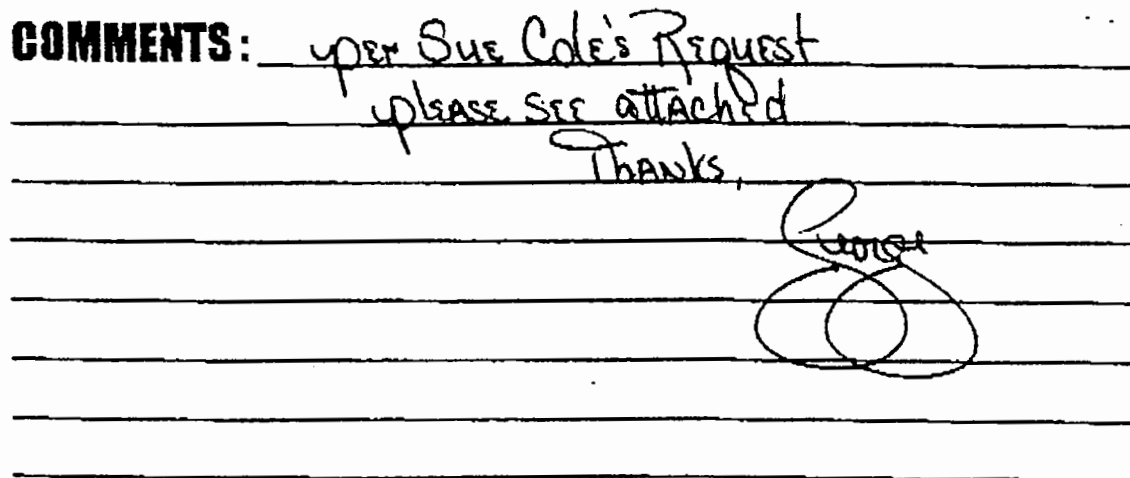 COMMENTS: per Sue Cole's Request
please see attached
Thanks,
George